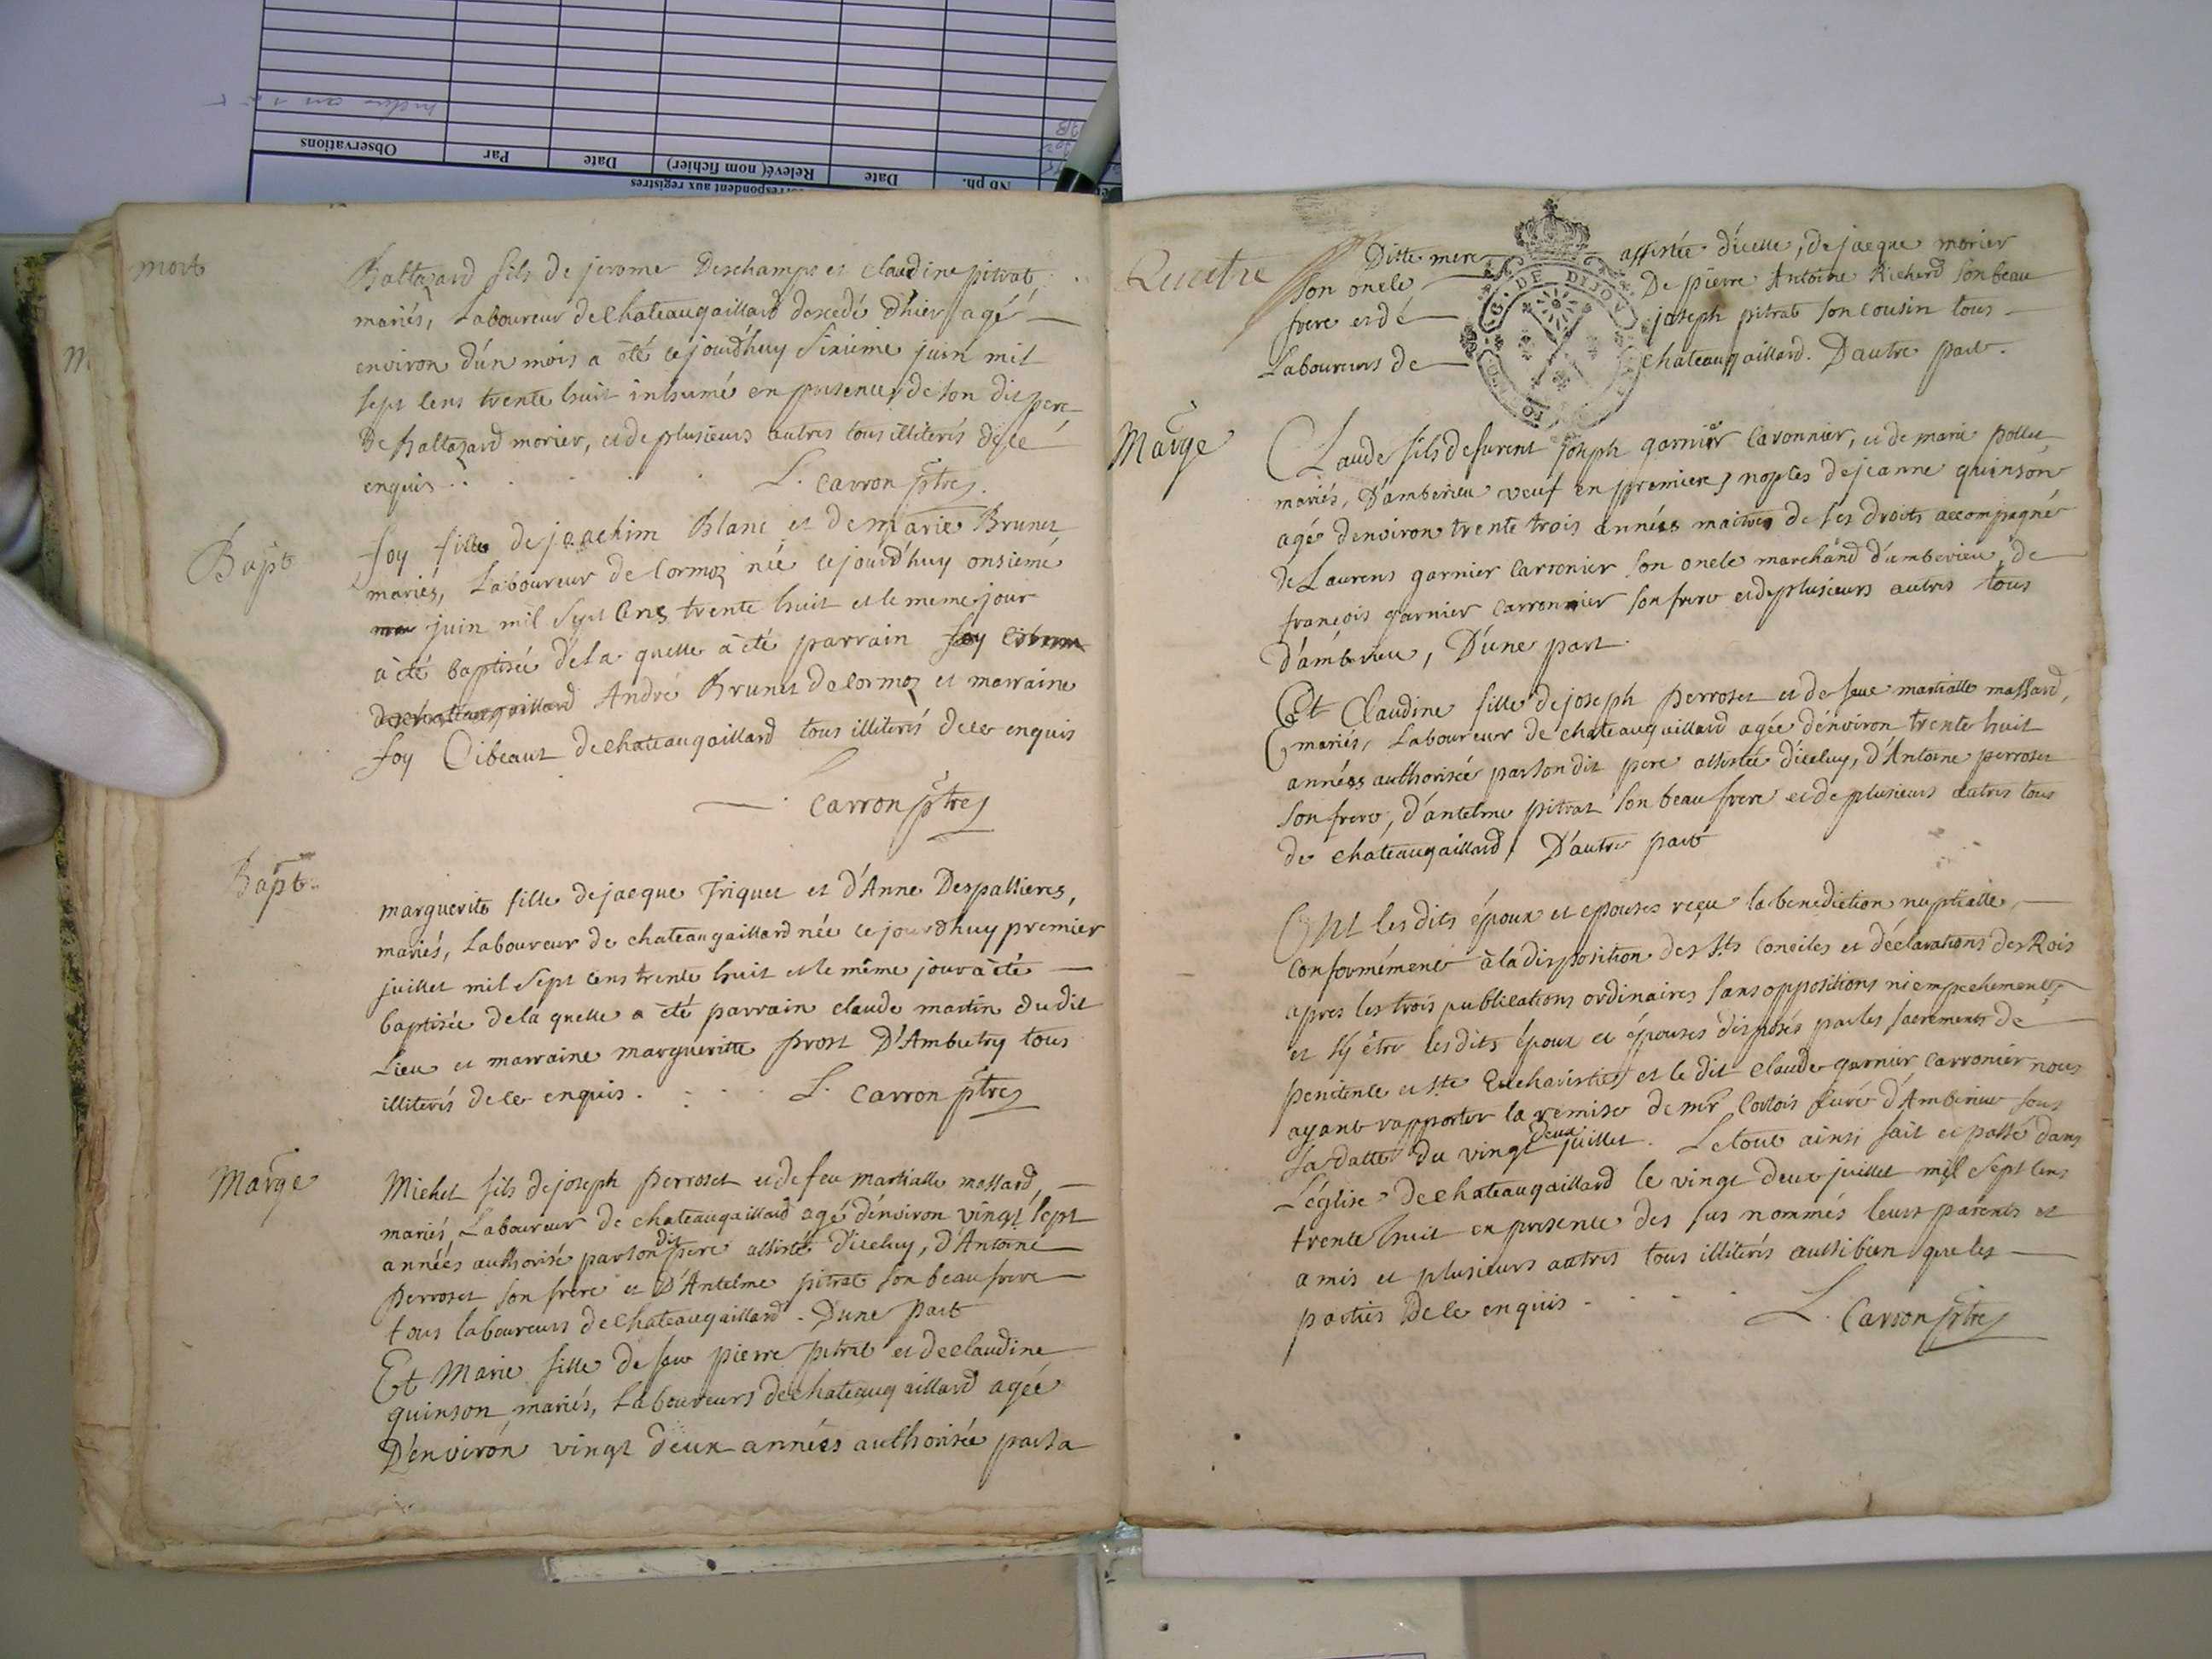 Observations
Par
Date
Relevé( nom fichier)
Date
Nb ph.
respondent aux registres
mort
Baltazard fils de jerome Deschamps et claudine pitrat
mariés, Laboureur de chateaugaillard decedé d'hier agé
environ d'un mois a èté cejourd'huy sixieme juin mil
sept cens trente huit inhumé en presence de son dit pere
De Baltazard morier, et de plusieurs autres tous illiterés de ce
enquis . . . . . L. Carron ptre
Bapt
foy fille de joachim Blanc et de marie Brunet
mariés, Laboureur de Cormoz née cejourd'huy onsieme
juin mil sept Cens trente huit et le meme jour
à èté baptisée de la quelle à èté parrain foy
de chateaugaillard André Brunet de Cormoz et marraine
foy Cibeaut de chateaugaillard tous illiterés de ce enquis
Carron ptre
Bapt
marguerite fille de jacque Triquet et d'Anne Despallieres,
mariés, Laboureur de chateaugaillard née cejourdhuy premier
juillet mil sept cens trente huit et le même jour à èté
baptisée de la quelle a èté parrain claude martin du dit
Lieu et marraine margueritte prost D'Ambutry tous
illiterés de ce enquis . L. Carron ptre
Marge
Michel fils de joseph perroset et de feu martialle massard,
mariés, Laboureur de chateaugaillard agé d'environ vingt sept
années authorisé par son dit pere assisté d'iceluy, d'Antoine
perroset son frere et D'Antelme pitrat son beau frere
tous laboureurs de chateaugaillard . D'une part
Et Marie fille de feu pierre pitrat et de claudine
quinson mariés, Laboureurs de chateaugaillard agée
D'environ vingt deux années authorisée par sa
Quatre
Ditte mere assistée d'icelle, de jacque morier
son oncle De pierre Antoine Richerd son beau
frere et de joseph pitrat son cousin tous
Laboureurs de chateaugaillard. D'autre part.
G. DE DIJON
Marge
Claude fils defurent joseph garnier Caronnier, et de marie pollet
mariés, D'amberieu veuf en premieres noptes de jeanne quinson
agé d'environ trente trois années maitre de ses droits accompagné
de Laurens garnier Carronier son oncle marchand d'amberieu, de
françois garnier Carronnier son frere et de plusieurs autres tous
d'amberieu, D'une part
Et Claudine fille de joseph perroset et de feue martialle massard,
mariés, Laboureur de chateaugaillard agée d'environ trente huit
années authorisée par son dit pere assistée d'iceluy, d'Antoine perroset
son frere, d'antelme pitrat son beau frere et de plusieurs autres tous
de chateaugaillard, D'autre part
Ont les dits époux et epouses reçu la benediction nuptialle,
conformément à la disposition des Sts Conciles et déclarations des Rois
apres les trois publications ordinaires sans oppositions ni empechements
et s'y être les dits époux et épouses disposés par les sacrements de
penitence et Ste Eucharistie, et le dit claude garnier carronier nous
ayant rapporter la remise de mr Cortois Curé d'Amberieu sous
sa datte du vingt deux juillet. Le tout ainsi fait et passé dans
L'église de chateaugaillard le vingt deux juillet mil sept cens
trente huit en presence des sus nommés leurs parents et
amis et plusieurs autres tous illiterés aussi bien que les
parties de ce enquis . . . . L. Carron ptre